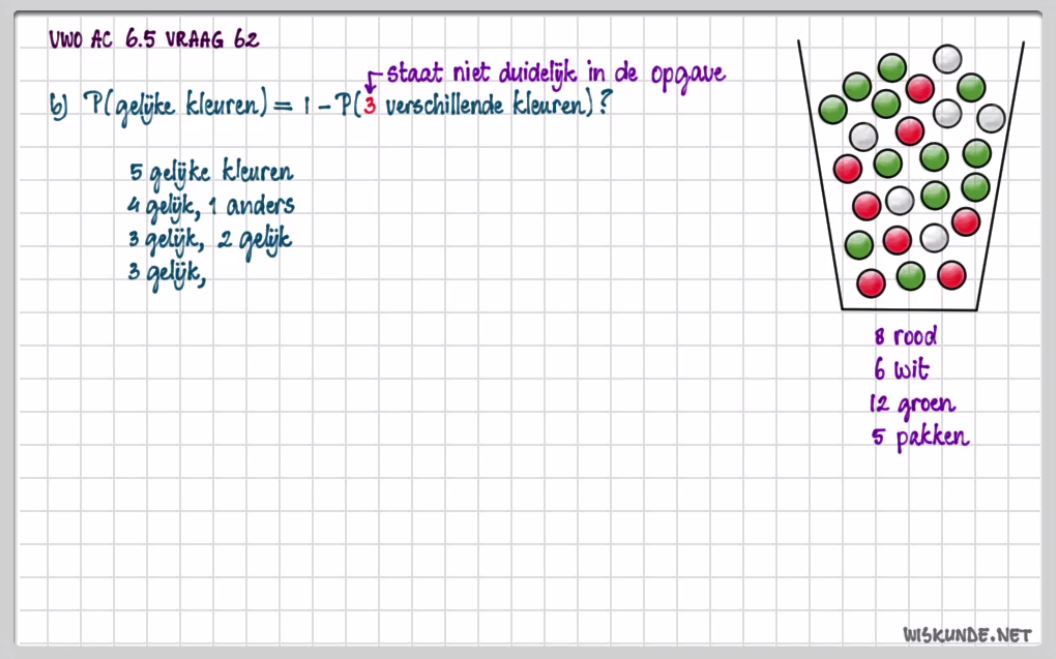 VWO AC 6.5 VRAAG 62
staat niet duidelijk in de opgave
b) P(gelijke kleuren) = 1 - P(3 verschillende kleuren)?
5 gelijke kleuren
4 gelijk, 1 anders
3 gelijk, 2 gelijk
3 gelijk,
8 rood
6 wit
12 groen
5 pakken
WISKUNDE.NET